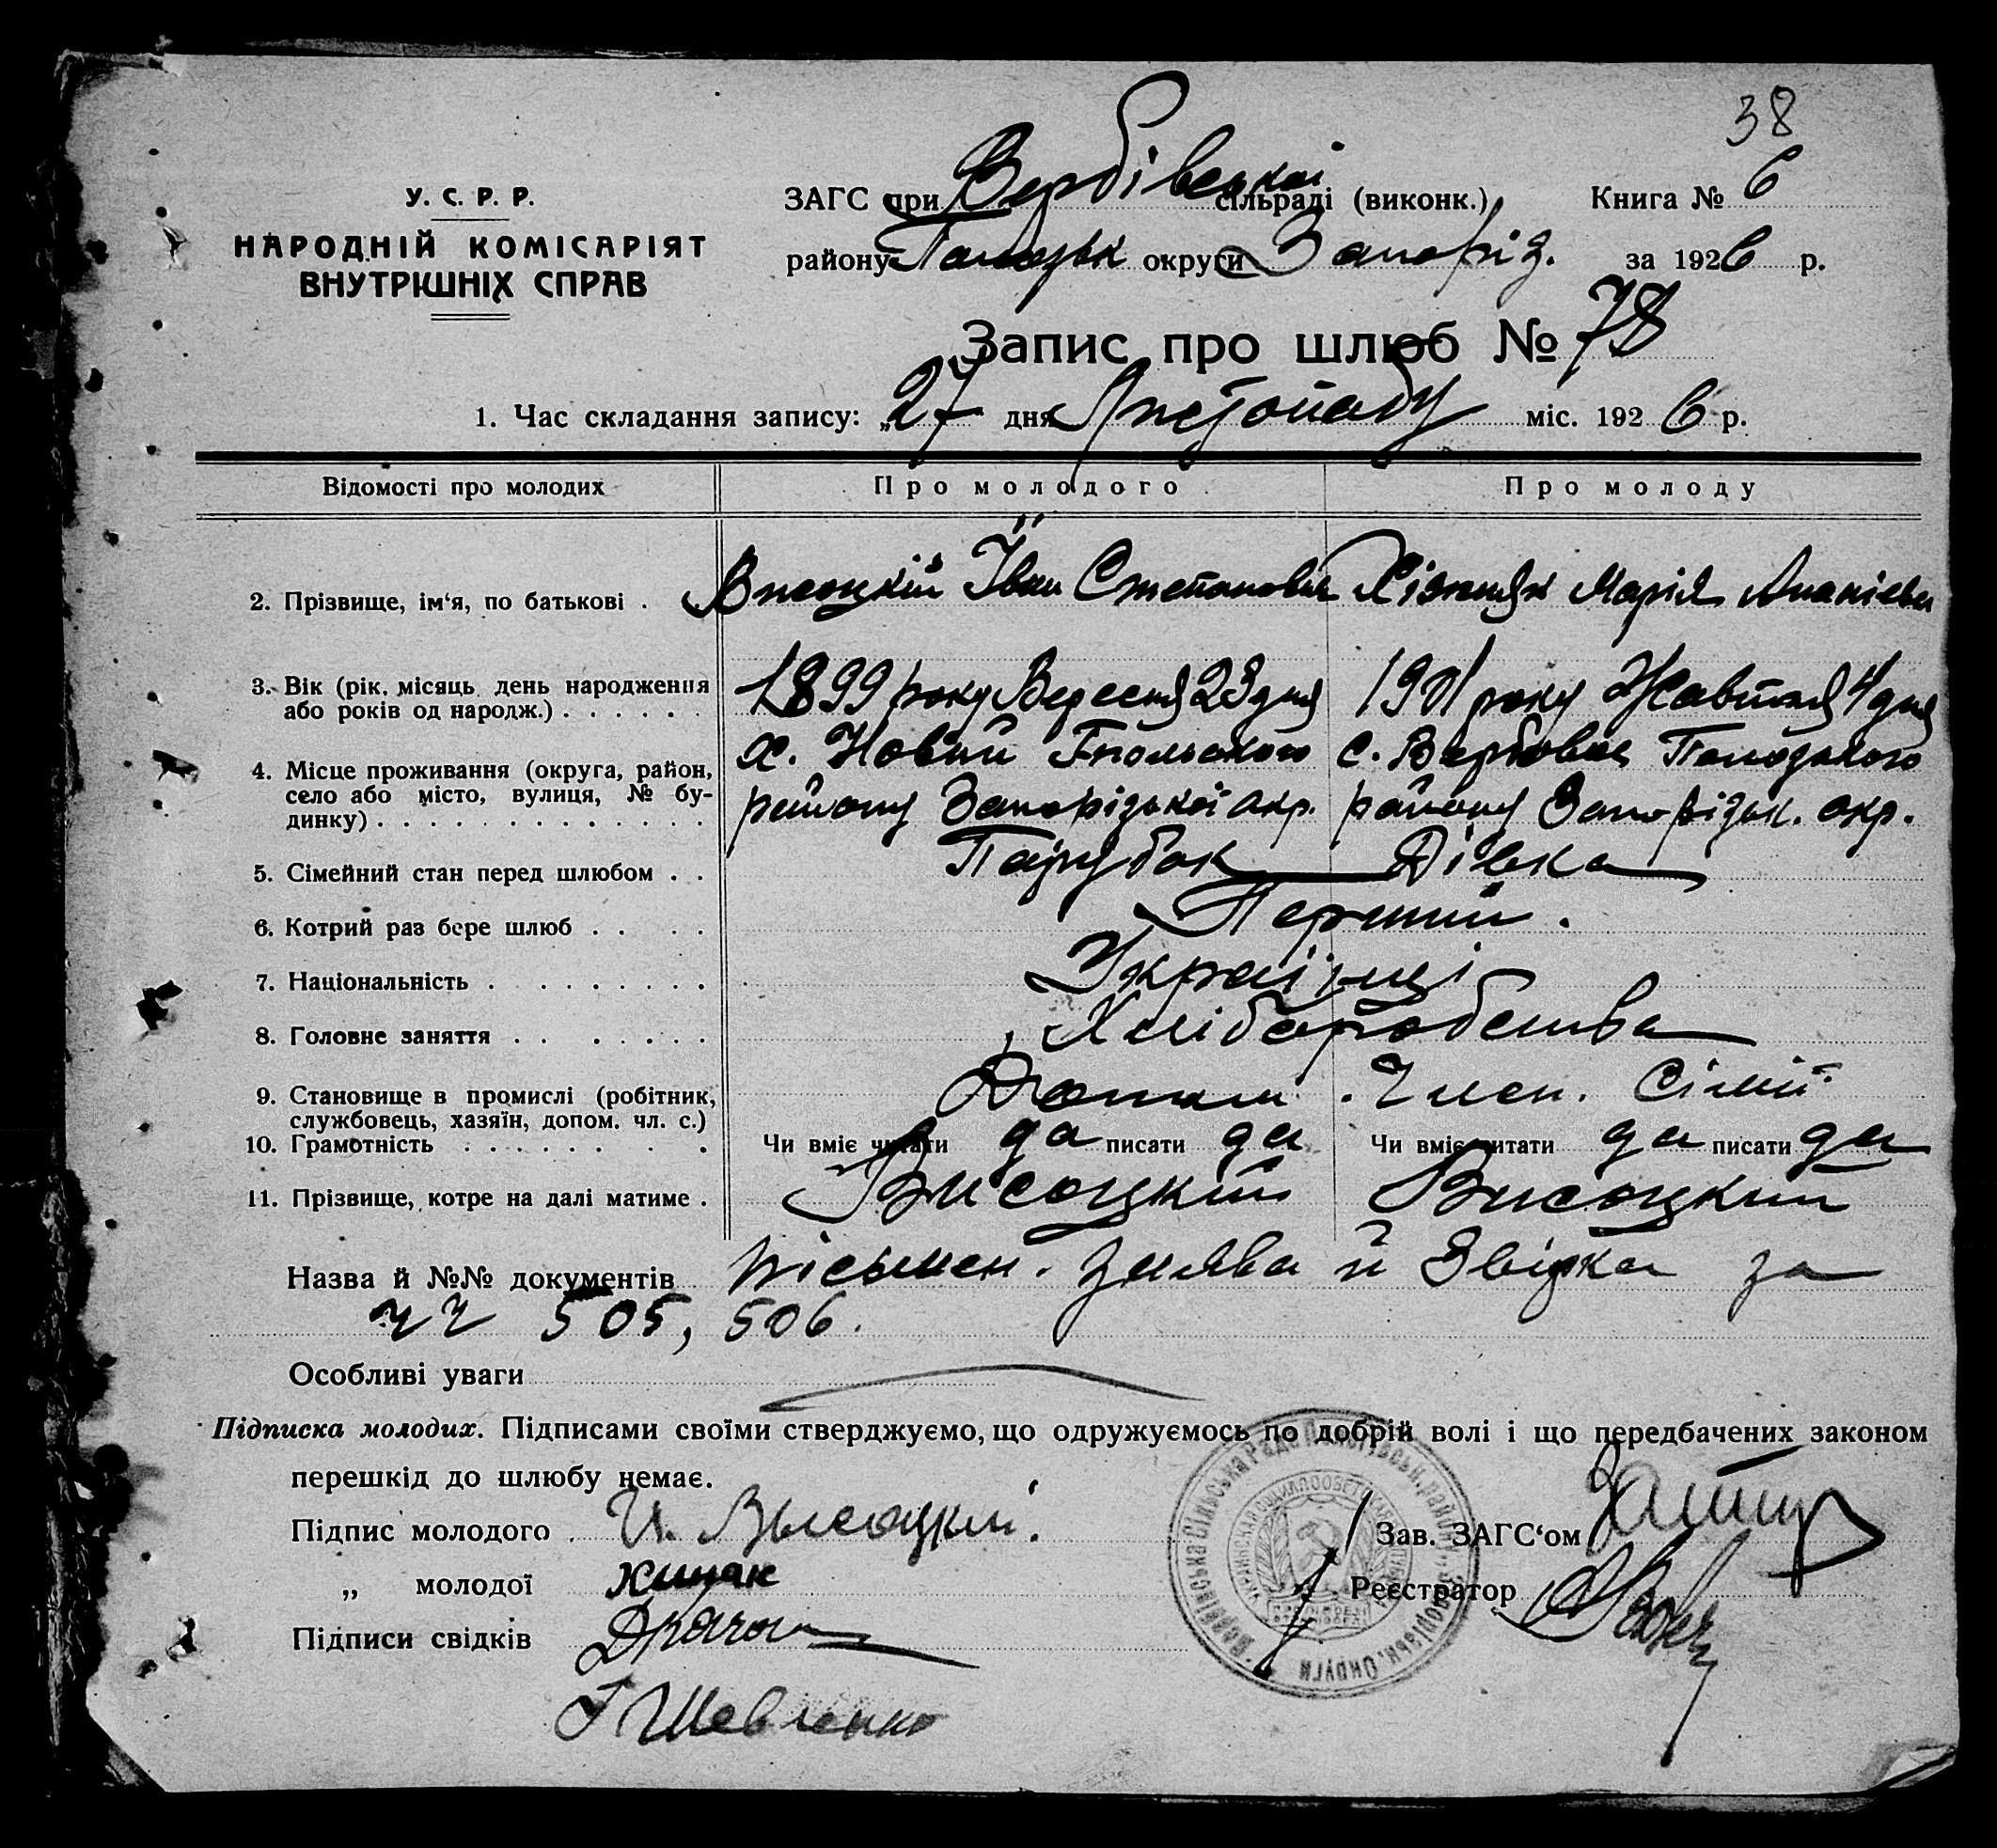 38
У. С. Р. Р.
НАРОДНІЙ КОМІСАРІЯТ
ВНУТРІШНІХ СПРАВ
ЗАГС при Вербівській сільраді (виконк.) Книга № 6
району округи Запоріз. за 1926 р.
Запис про шлюб № 78
1. Час складання запису: „27 дня Листопаду міс. 1926 р.
Відомості про молодих Про молодого Про молоду
2. Прізвище, ім‘я, по батькові . Висоцкій Іван Степанович Хіжняк Марія Ананіевна
3. Вік (рік, місяць день народження 1899 року Вересня 23 дня 1901 року Жавтня 4 дня
або років од народж.) . . . . . .
4. Місце проживання (округа, район, х. Новий с. Вербове Пологського
село або місто, вулиця, № бу- району Запорізькоі окр. району Запорізьк. окр.
динку) . . . . . . . . . . . . .
5. Сімейний стан перед шлюбом . . Парубок Дівка
6. Котрий раз бере шлюб . . . . Перший .
7. Національність . . . . . . . . . Украінці
8. Головне заняття . . . . . . . . Хліборобства
9. Становище в промислі (робітник, Допом. Член. Сімії
службовець, хазяїн, допом. чл. с.)
10. Грамотність . . . . . . . . Чи вміє читати да писати да Чи вміє читати да писати да
11. Прізвище, котре на далі матиме . Висоцкій Висоцкий
Назва й №№ документів пісьмен. заява й Звідка за
чч 505, 506.
Особливі уваги
Підписка молодих. Підписами своїми стверджуємо, що одружуємось по добрій волі і що передбачених законом
перешкід до шлюбу немає.
Підпис молодого . И. Высоцкий. Зав. ЗАГС‘ом
„ молодої Хижак Реєстратор
Підписи свідків
Г Шевченко